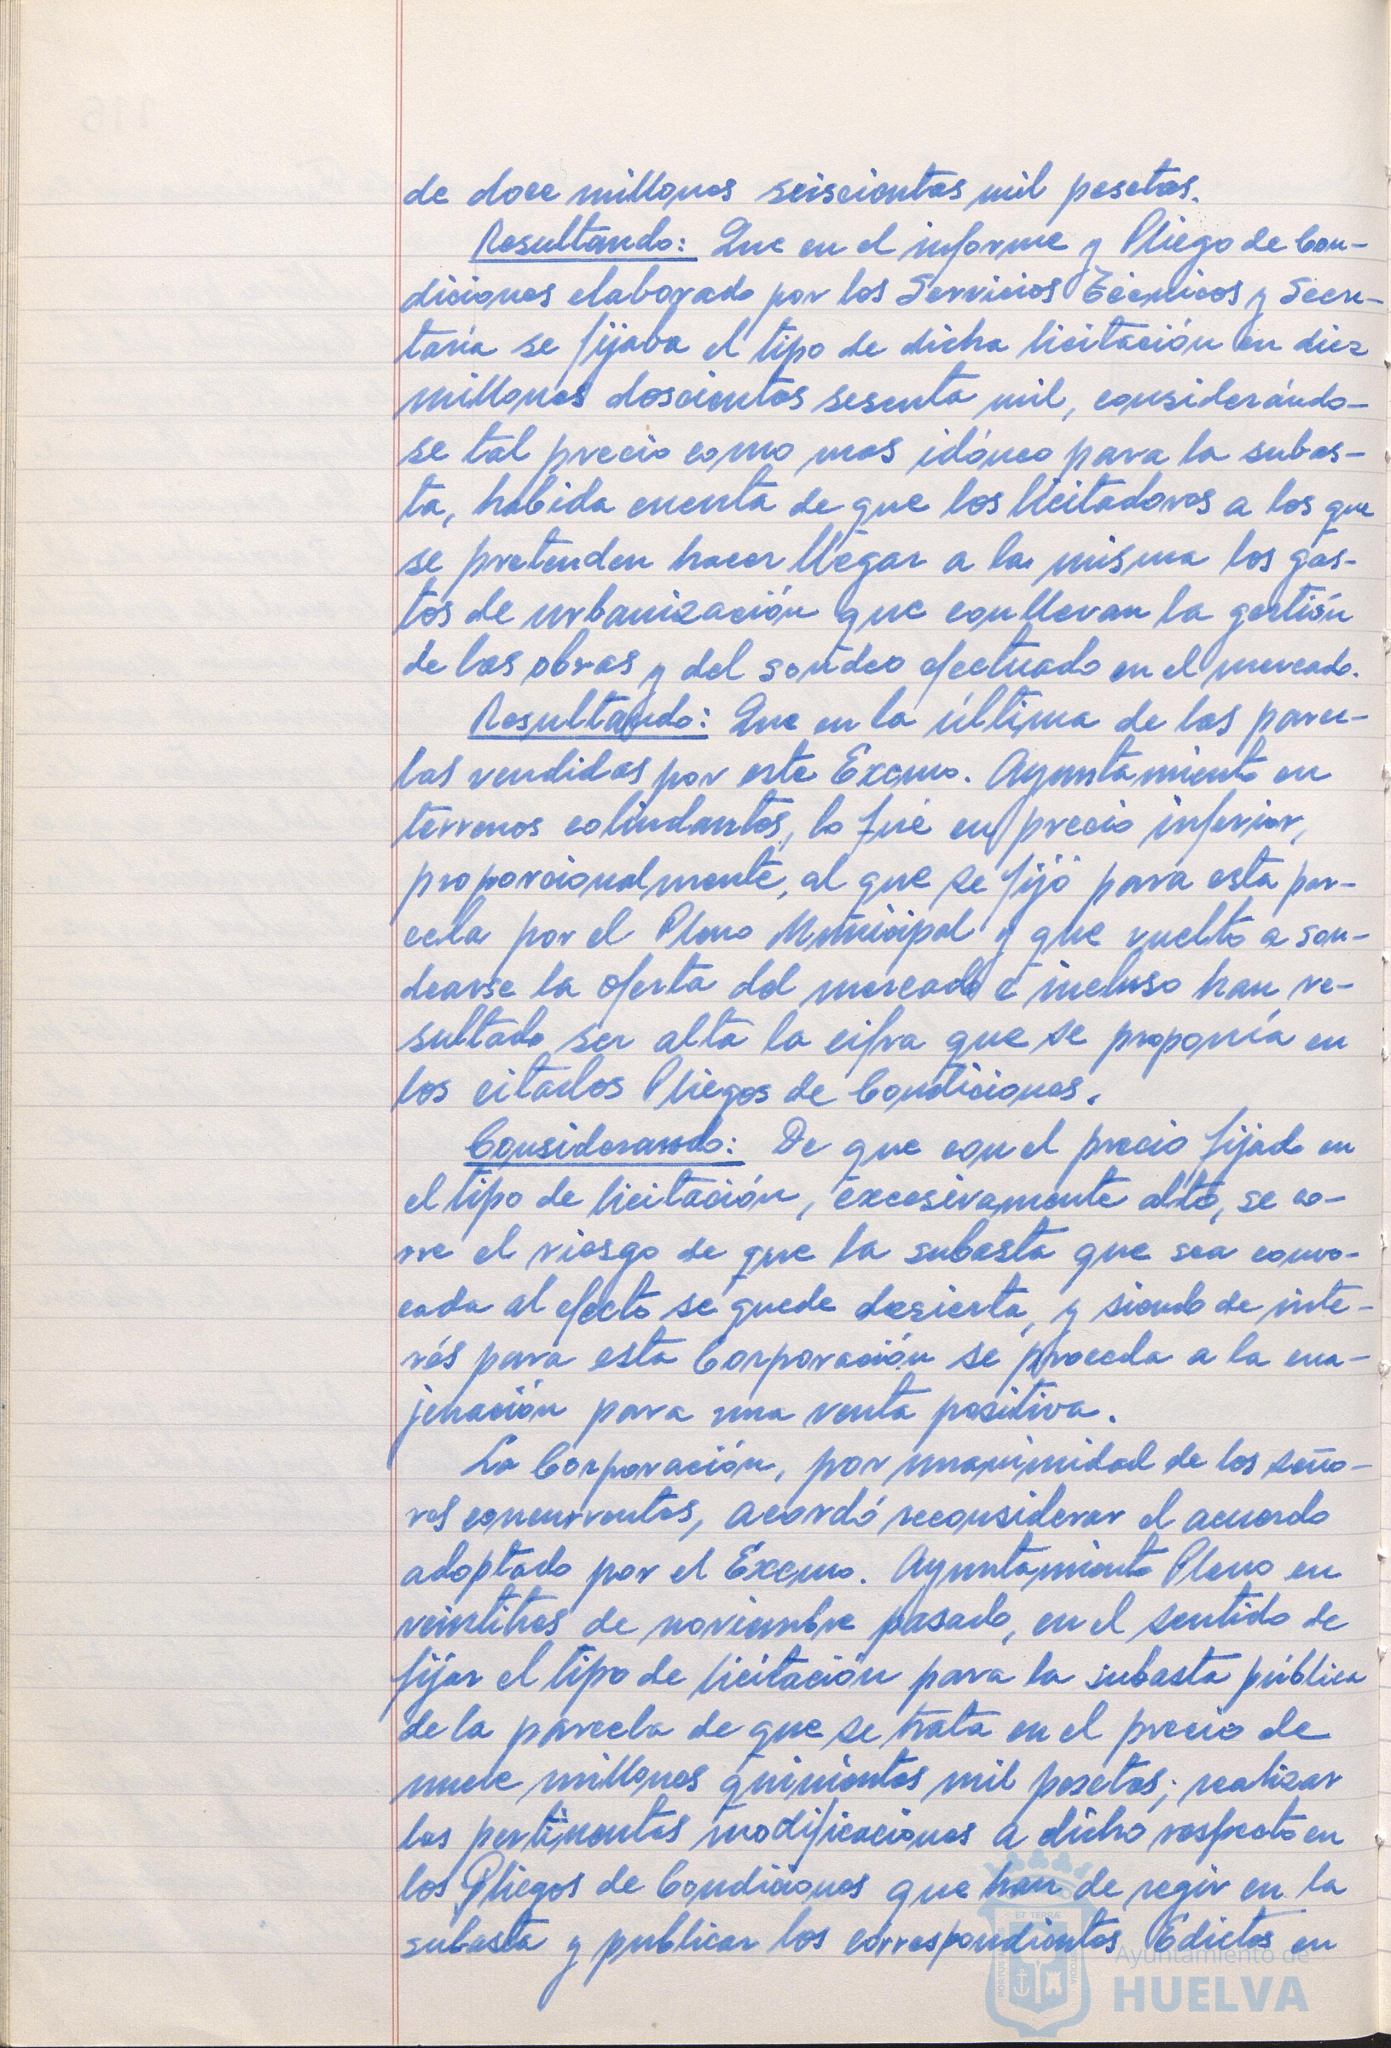 de doce millones seiscientas mil pesetas.
Resultando: Que en el informe y Pliego de Con-
diciones elaborado por los Servicios Técnicos y Secre-
taría se fijaba el tipo de dicha licitación en diez
millones doscientas sesenta mil, considerándo-
se tal precio como mas idóneo para la subas-
ta, habida cuenta de que los licitadores a los que
se pretenden hacer llegar a la misma los gas-
tos de urbanización que conllevan la gestión
de las obras y del sondeo efectuado en el mercado.
Resultando: Que en la última de las parce-
las vendidas por este Excmo. Ayuntamiento en
terrenos colindantes, lo fué en precio inferior,
proporcionalmente, al que se fijó para esta par-
cela por el Pleno Municipal y que vuelto a son-
dearse la oferta del mercado e incluso han re-
sultado ser alta la cifra que se proponía en
los citados Pliegos de Condiciones.
Considerando: De que con el precio fijado en
el tipo de licitación, excesivamente alto, se co-
rre el riesgo de que la subasta que sea convo-
cada al efecto se quede desierta, y siendo de inte-
rés para esta Corporación se proceda a la ena-
jenación para una venta positiva.
La Corporación, por unanimidad de los seño-
res concurrentes, acordó reconsiderar el acuerdo
adoptado por el Excmo. Ayuntamiento Pleno en
veintitres de noviembre pasado, en el sentido de
fijar el tipo de licitación para la subasta pública
de la parcela de que se trata en el precio de
nueve millones quinientas mil pesetas; realizar
las pertinentes modificaciones a dicho respecto en
los Pliegos de Condiciones que han de regir en la
subasta y publicar los correspondientes Edictos en
Ayuntamiento de
HUELVA